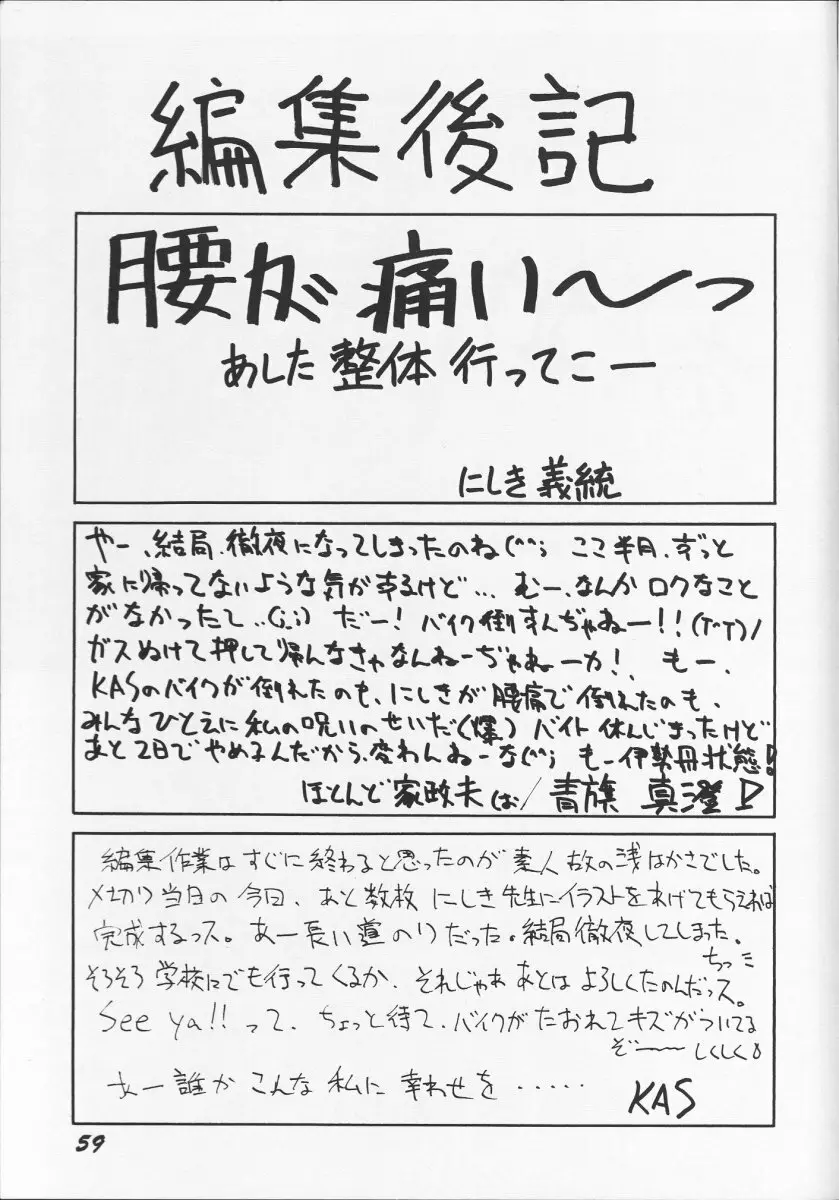 編集後記
腰が痛い〜っ
あした整体行ってこー
にしき義統
やー、結局、徹夜になってしまったのね(^^; ここ半月、ずっと
家に帰ってないような気がするけど… むー、なんかロクなこと
がなかったて‥(;_;) だー! バイク倒すんぢゃねー!!(T^T)ノ
ガスぬけて押して帰んなきゃなんねーぢゃねーカ! もー、
KASのバイクが倒れたのも、にしきが腰痛で倒れたのも、
みんなひとえに私の呪いのせいだ(爆) バイト休んじまったけど
あと2日でやめるんだから、変わんねーな(^^; もー伊勢丹状態!
ほとんど家政夫(お/青旗 真澄
編集作業はすぐに終わると思ったのが素人故の浅はかさでした。
〆切り当日の今日、あと数枚にしき先生にイラストをあげてもらえれば
完成するっス。あー長い道のりだった。結局徹夜してしまった。
ちっミ
そろそろ学校にでも行ってくるか、それじゃあ あとはよろしくたのんだっス。
See ya!! って、ちょっと待て、バイクがたおれてキズがついてる
ぞ〜〜 しくしく
あー誰か こんな私に幸わせを・・・・・
KAS
59